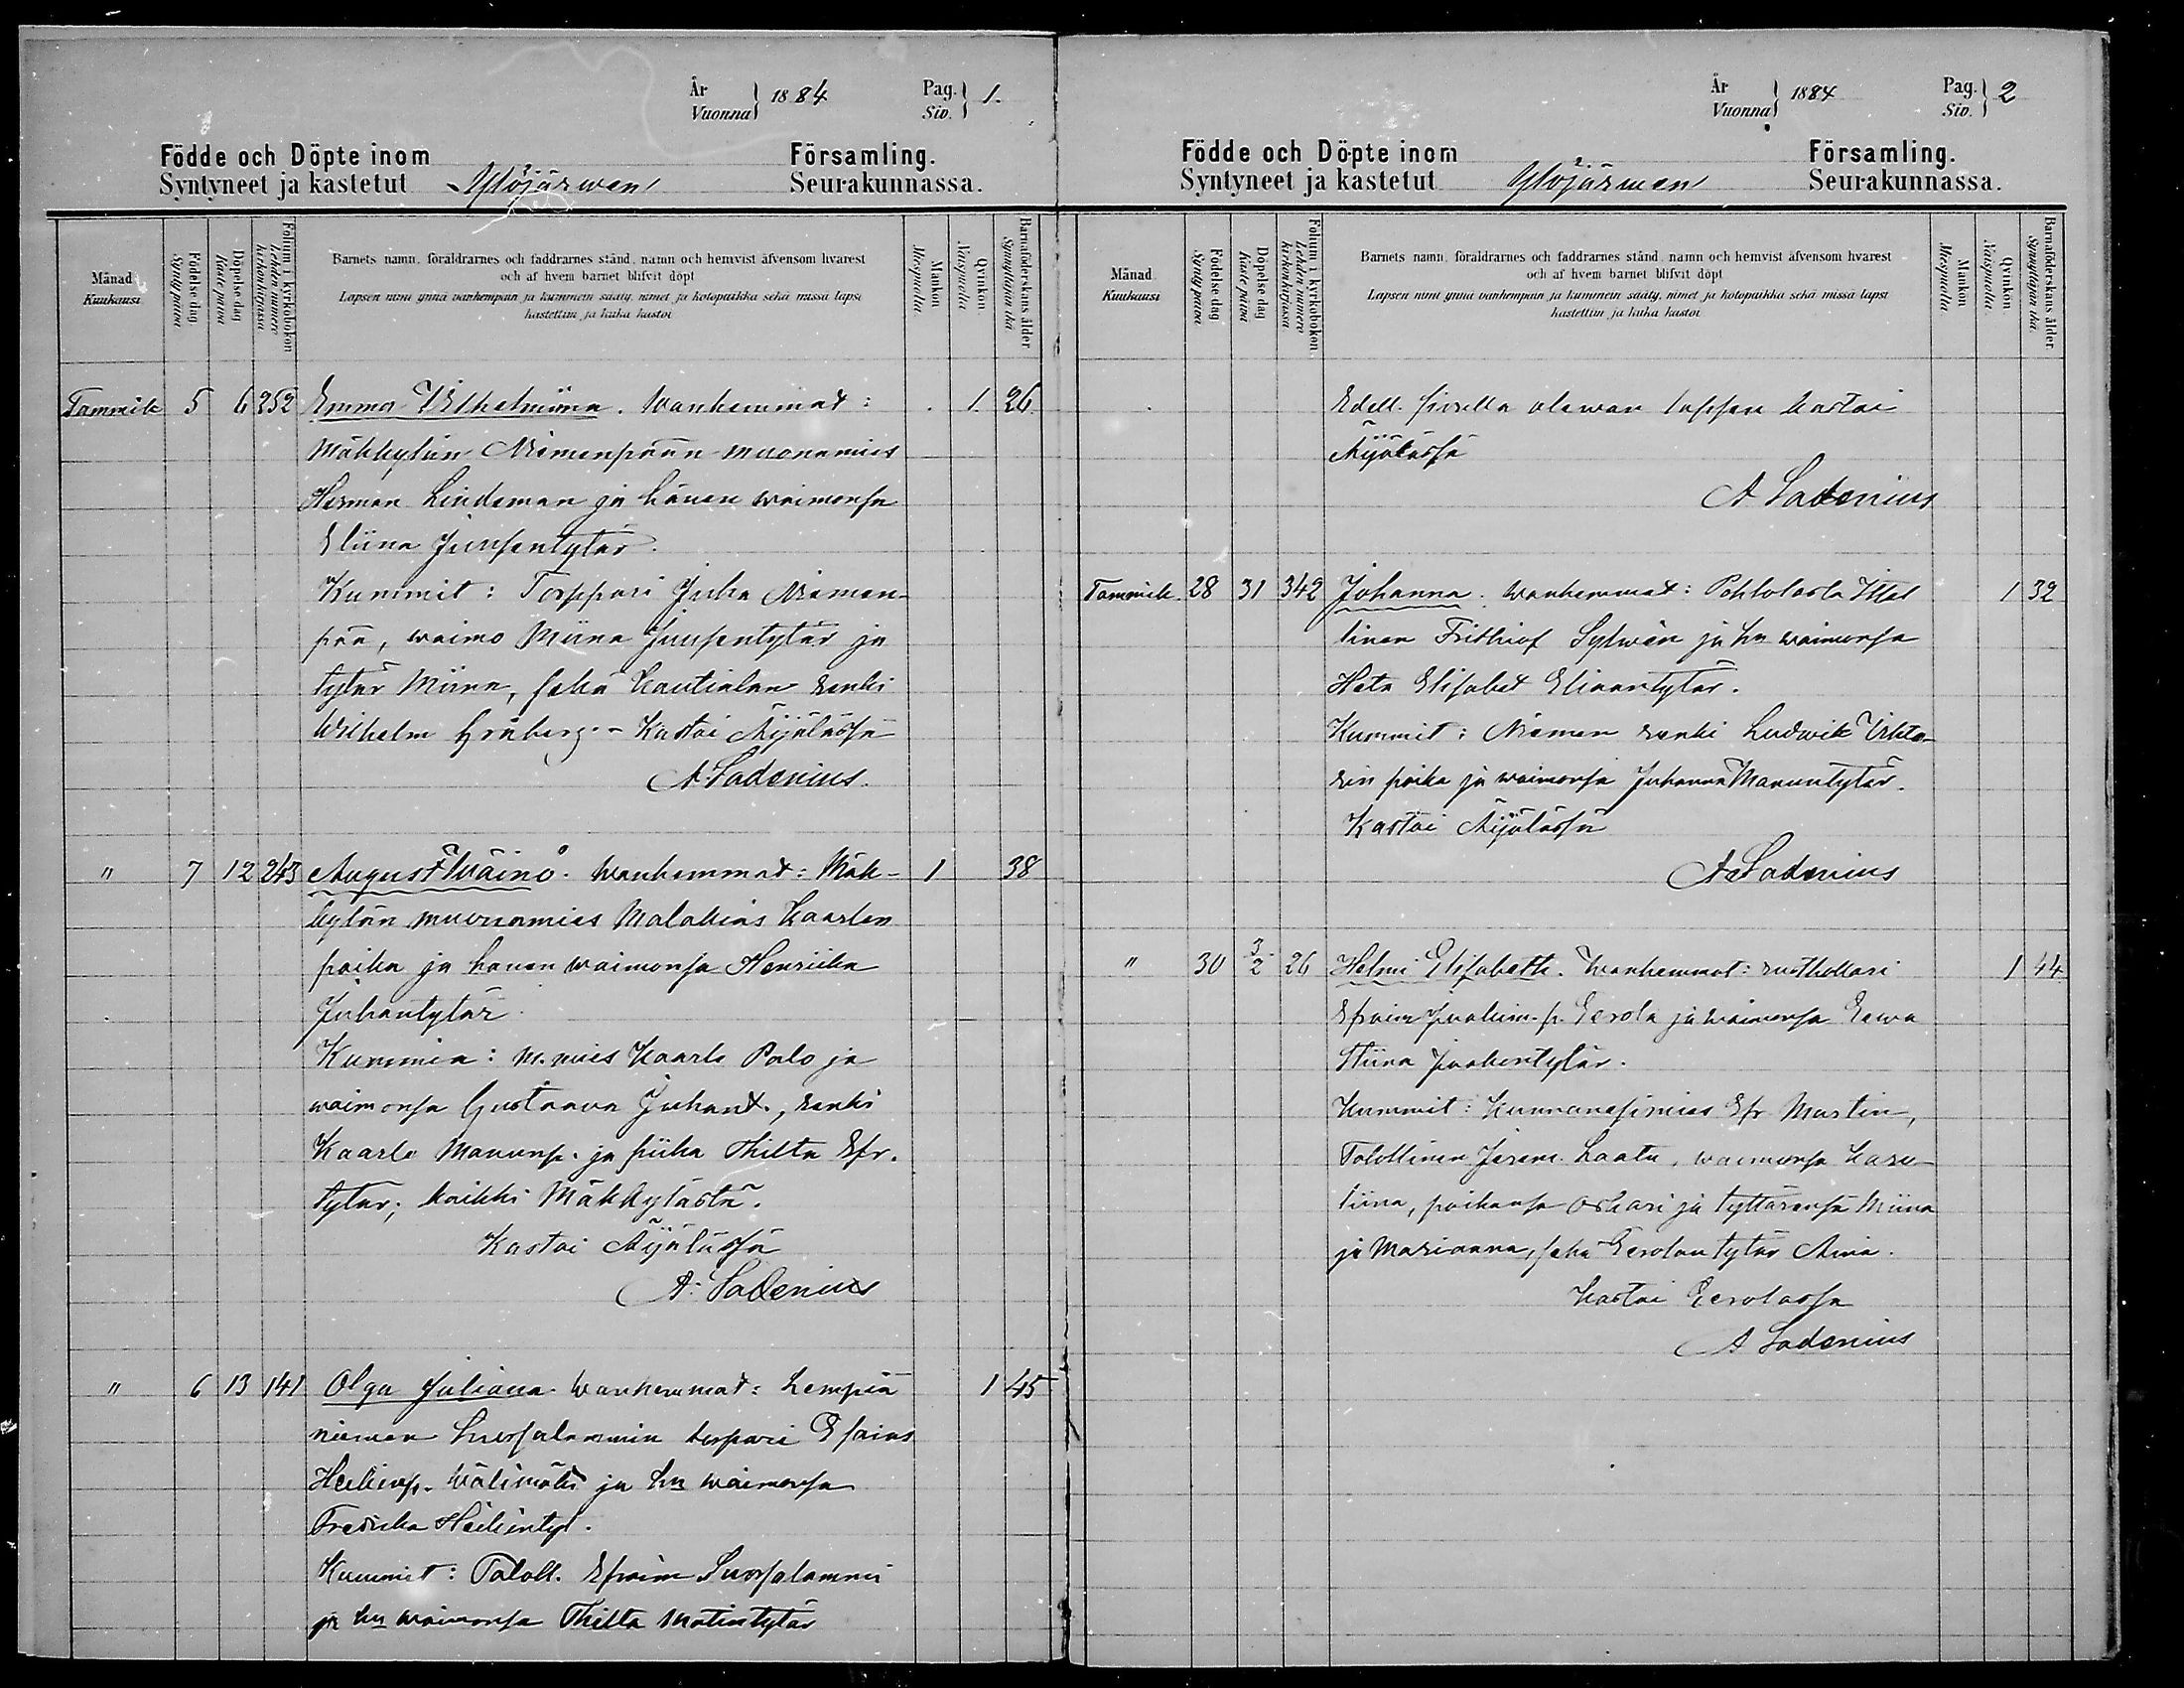 År
Vuonna } 1884 Pag.
Siv. } 1.
Födde och Döpte inom Församling.
Syntyneet ja kastetut Ylöjärwen Seurakunnassa.
Månad
Kuukausi
Födelse dag
Synty päivä
Döpelse dag
Kaste päivä
Folium i kyrkoboken
Lehden numero kirkonkirjassa
Barnets namn, föräldrarnes och faddrarnes stånd, namn och hemvist äfvensom hvarest
och af hvem barnet blifvit döpt
Lapsen nimi ynnä vanhempain ja kummein sääty, nimet ja kotopaikka sekä missä lapsi
kastettiin ja kuka kastoi
Mankön
Miespuolia
Qvinkön
Vaispuolia
Barnaföderskans ålder
Synnyttäjän ikä
Tammik 5 6 252 Emma Wilhelmiina. Wanhemmat: 1. 26
Mäkkylän Niemenpään muonamies
Herman Lindeman ja hänen waimonsa
Eliina Juusentytär.
Kummit: Torppari Juha Niemen-
pää, waimo Miina Juusentytär ja
tytär Miina, sekä Kautialan renki
Wilhelm Grönberg. - Kastoi Äijälässä
A. Ladenius.
" 7 12 243 August Wäinö. Wanhemmat: Mäk- 1 38
kylän muonamies Malakias Kaarlen
poika ja hänen waimonsa Henriika
Juhantytär.
Kummia: M. mies Kaarle Palo ja
waimonsa Gustaava Juhant., renki
Kaarle Manunp. ja piika Thilta Efr.
tytär; kaikki Mäkkylästä.
Kastoi Äijälässä
A. Ladenius
" 6 13 141 Olga Juliana. Wanhemmat: Lempiä 1 45
niemen Suosalammin torpari Esaias
Heikinp. Wälimäki ja hn waimonsa
Fredrika Heikintyt.
Kummit: Taloll. Efraim Suosalammi
ja hn waimonsa Thilta Matintytär
År
Vuonna } 1884 Pag.
Siv. } 2
Födde och Döpte inom Församling.
Syntyneet ja kastetut Ylöjärwen Seurakunnassa.
Månad
Kuukausi
Födelse dag
Synty päivä
Döpelse dag
Kaste päivä
Folium i kyrkoboken
Lehden numero kirkonkirjassa
Barnets namn, föräldrarnes och faddrarnes stånd, namn och hemvist äfvensom hvarest
och af hvem barnet blifvit döpt
Lapsen nimi ynnä vanhempain ja kummein sääty, nimet ja kotopaikka sekä missä lapsi
kastettiin ja kuka kastoi
Mankön
Miespuolia
Qvinkön
Vaispuolia
Barnaföderskans ålder
Synnyttäjän ikä
Edell. siwulla olewan lapsen kastoi
Äijälässä
A Ladenius
Tammik. 28 31 342 Johanna. Wanhemmat: Pohtolasta Ittel 1 32
linen Frithiof Sylwén ja hn waimonsa
Heta Elisabet Eliaantytär.
Kummit: Niemen renki Ludwik Wikto-
rin poika ja waimonsa Johanna Manuntytär.
Kastoi Äijälässä
A Ladenius
" 30 3/2 26 Helmi Elisabeth. Wanhemmat: rusthollari 1 44
Efraim Joakim. p. Eerola ja waimonsa Eewa
Stiina Jaakontytär.
Kummit: Kunnanesimies Efr Martin,
Talollinen Jerem. Laatu, waimonsa Karo-
liina, poikansa Oskari ja tyttärensä Miina
ja Marianna, sekä Eerolan tytär Aina.
Kastoi Eerolassa
A Ladenius